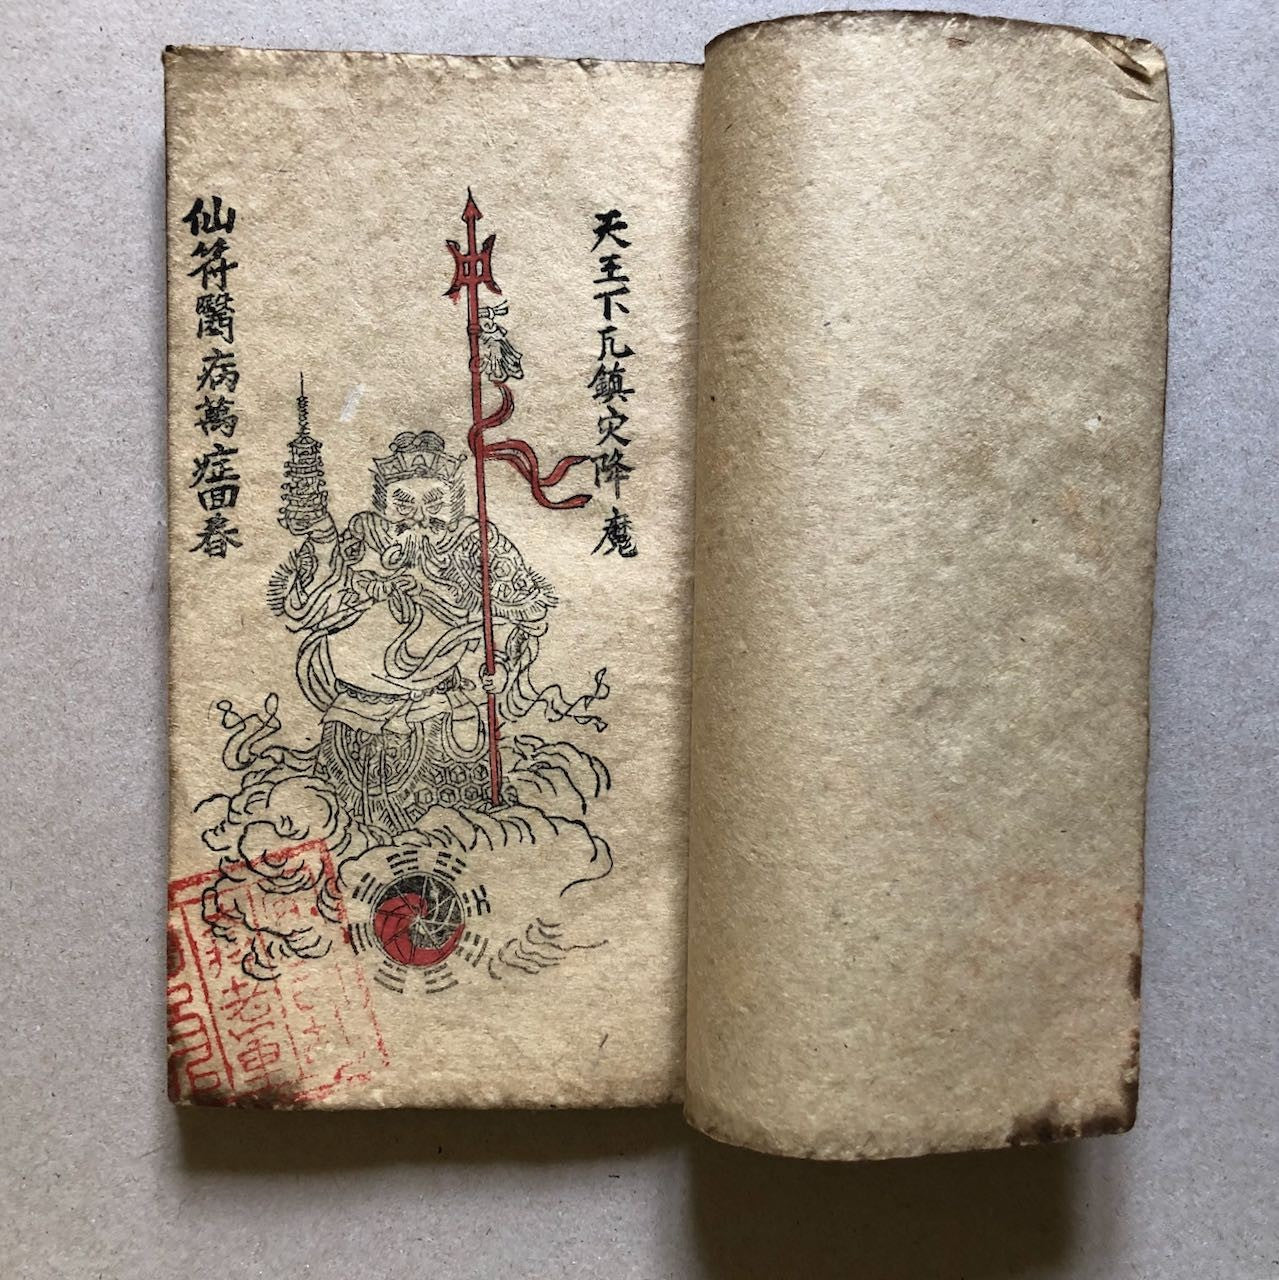 天王下凡鎮灾降魔
仙符醫病萬症回春
老君